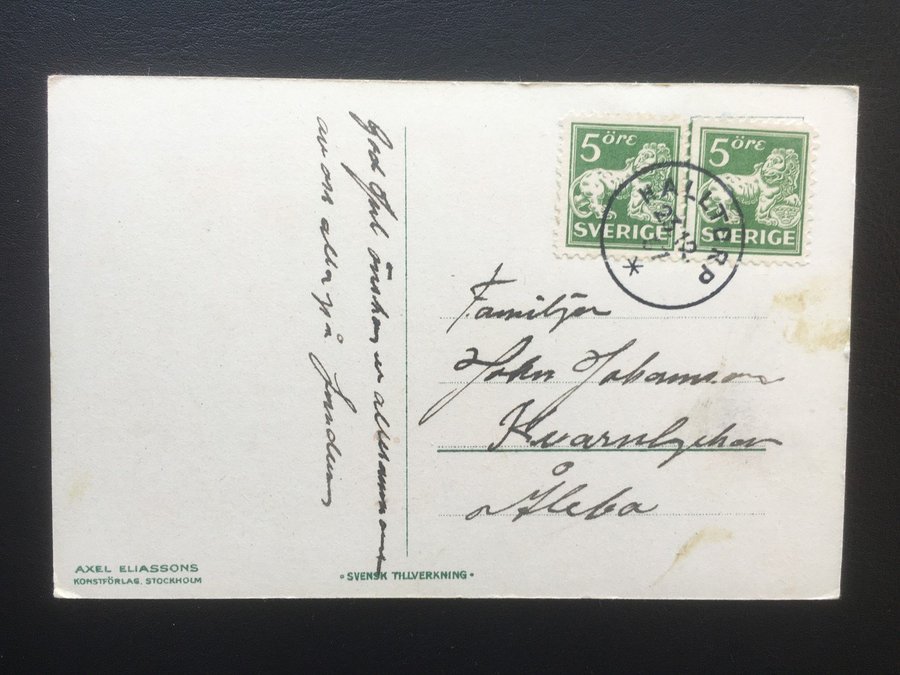 God Jul önskas er allesamman
av oss alla på
5 öre
SVERIGE
5 öre
SVERIGE
HALLTORP
Familjen
John Johansson
Åleba
AXEL ELIASSONS
KONSTFÖRLAG. STOCKHOLM
• SVENSK TILLVERKNING •